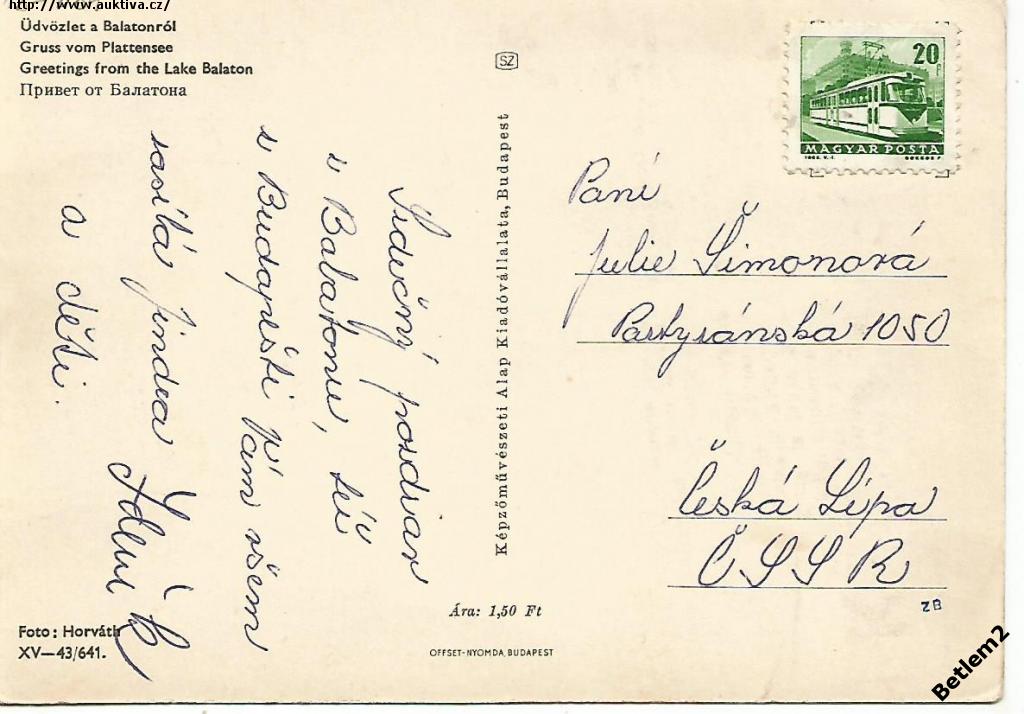 http://www.auktiva.cz/
Üdvözlet a Balatonról
Gruss vom Plattensee
Greetings from the Lake Balaton
Привет от Балатона
SZ
20f
MAGYAR POSTA
Srdečný pozdrav
z Balatonu, též
z Budapešti Vám všem
zasílá Jindra
Zdeněk
a děti.
Képzőművészeti Alap Kiadóvállalata, Budapest
Paní
Julie Šimonová
Partyzánská 1050
Česká Lípa
ČSSR
ZB
Ára: 1,50 Ft
Foto: Horváth
XV—43/641.
OFFSET-NYOMDA, BUDAPEST
Betlem2